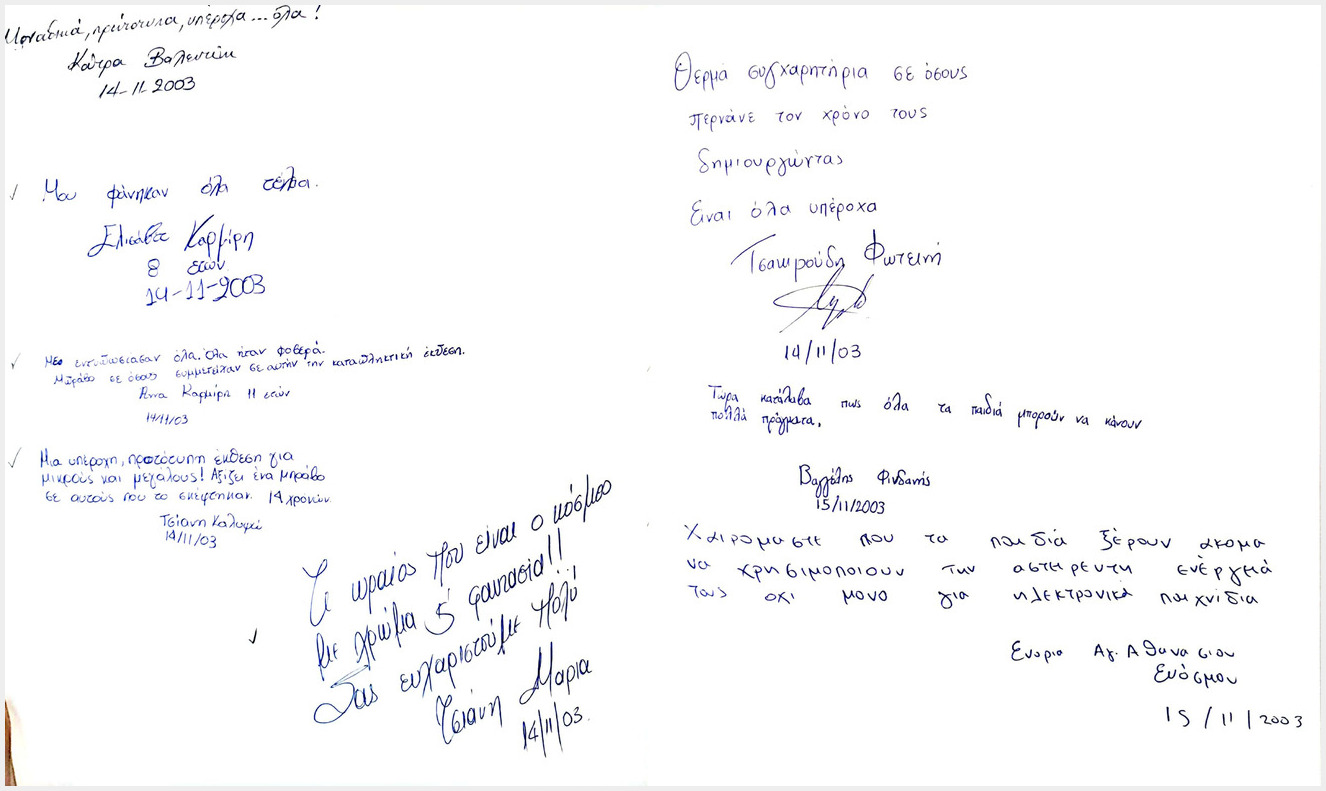 Μοναδικά, πρωτότυπα, υπέροχα... όλα!
Κάτρα Βαλεντίνη
14-11-2003
Μου φάνηκαν όλα τέλεια.
Ελισάβετ Καρμίρη
8 ετών
14-11-2003
Με εντυπωσίασαν όλα. Όλα ήταν φοβερά.
Μπράβο σε όσους συμμετείχαν σε αυτήν την καταπληκτική έκθεση.
Άννα Καρμίρη 11 ετών
14/11/03
Μια υπέροχη, πρωτότυπη έκθεση για
μικρούς και μεγάλους! Αξίζει ένα μπράβο
σε αυτούς που το σκέφτηκαν. 14 χρονών.
Τσιάνη
14/11/03
Τι ωραίος που είναι ο κόσμος
με χρώμα & φαντασία!!
Σας ευχαριστούμε πολύ
Τσιάνη Μαρία
14/11/03.
Θερμά συγχαρητήρια σε όσους
περνάνε τον χρόνο τους
δημιουργώντας
Είναι όλα υπέροχα
Τσακιρούδη Φωτεινή
14/11/03
Τώρα κατάλαβα πως όλα τα παιδιά μπορούν να κάνουν
πολλά πράγματα.
Βαγγέλης Φινδανής
15/11/2003
Χαιρομαστε που τα παιδιά ξέρουν ακομα
να χρησιμοποιουν την αστιρευτη ενέργειά
τους οχι μονο για ηλεκτρονικά παιχνίδια
Ενορια Αγ. Αθανασιου
Ευόσμου
15/11/2003